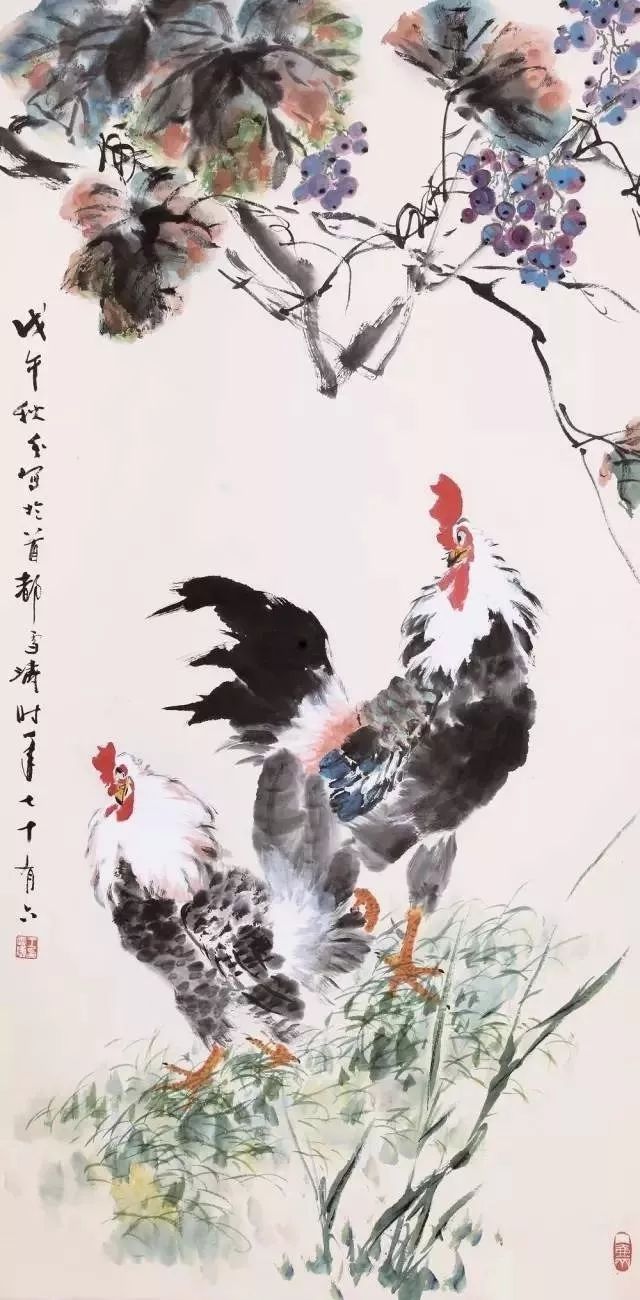 戊午秋分写于首都雪涛时年七十有六